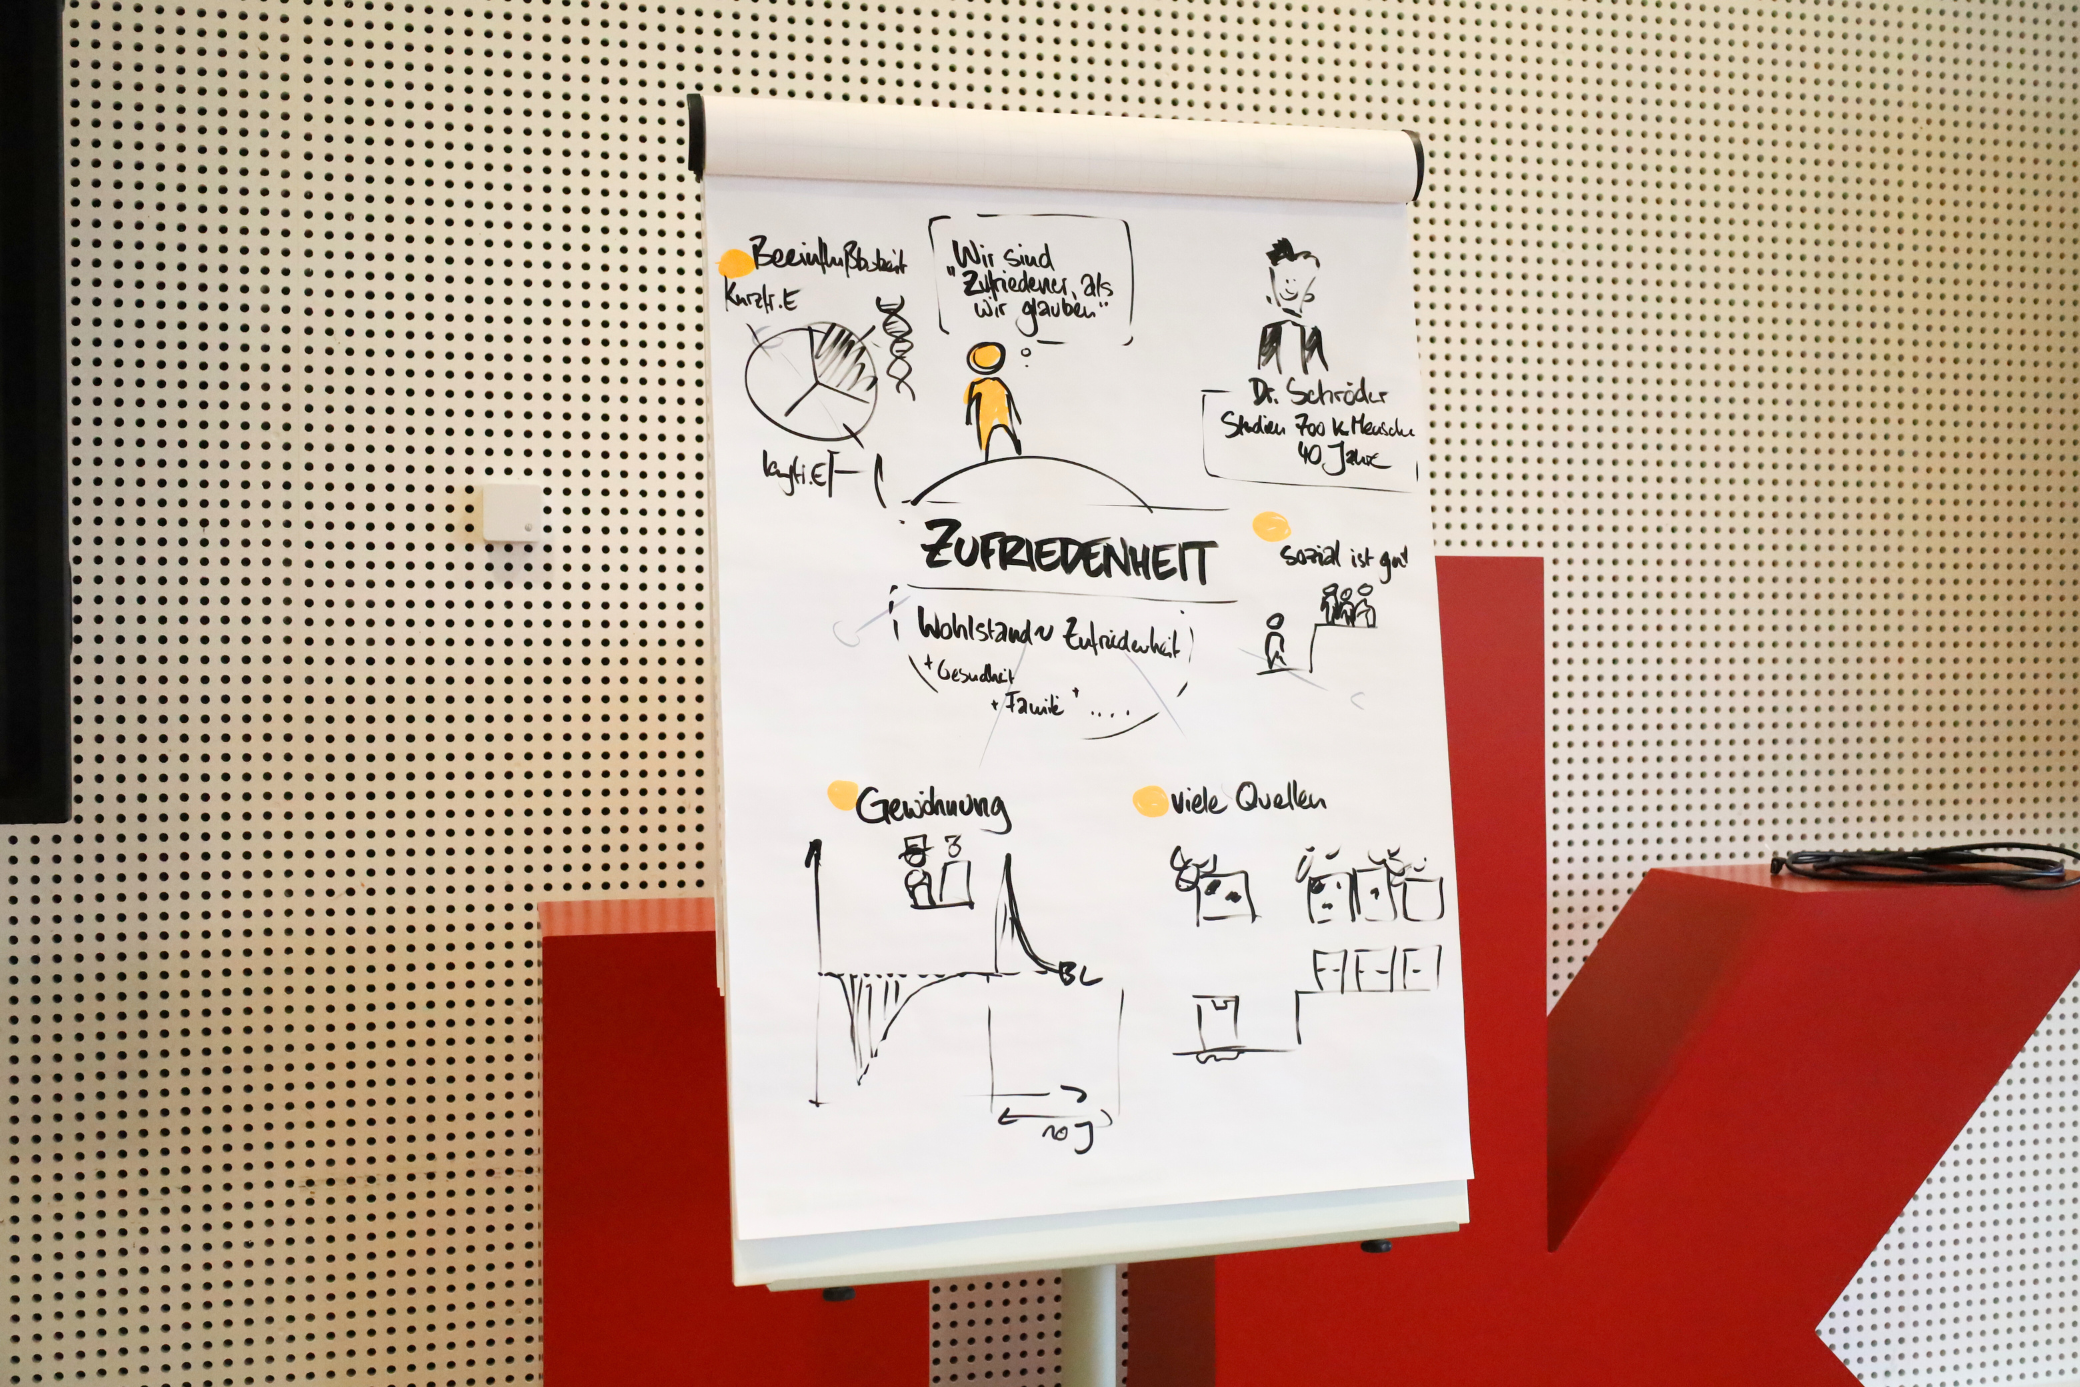 Beeinflußbarkeit
Kurzfr. E
langfr. E
Wir sind
"Zufriedener, als
wir glauben"
Dr. Schröder
Studien 700 k Mensche
40 Jahre
ZUFRIEDENHEIT
Wohlstand ~ Zufriedenheit
+ Gesundheit
+ Familie + ....
sozial ist gut
Gewöhnung
BL
10 J
viele Quellen